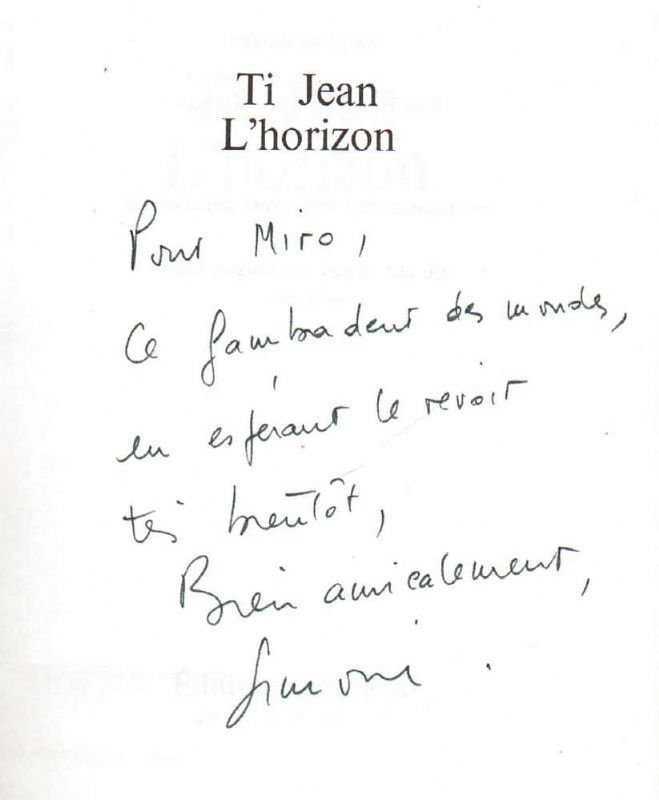 Ti Jean
L'horizon
Pour Miro,
Ce gambadeur des mondes,
en espérant le revoir
très bientôt,
Bien amicalement,
Simone.